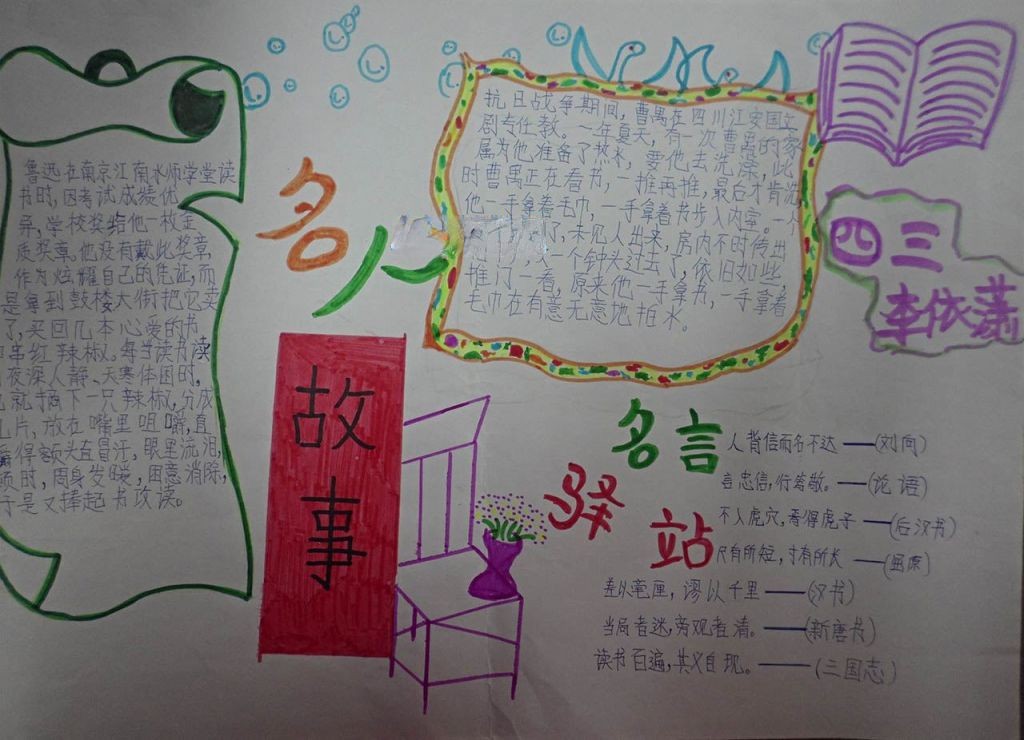 名人
故事
鲁迅在南京江南水师学堂读
书时,因考试成绩优
异,学校奖给他一枚金
质奖章。他没有戴此奖章,
作为炫耀自己的凭证,而
是拿到鼓楼大街把它卖
了,买回几本心爱的书
串红辣椒。每当读书读
夜深人静、天寒体困时,
就摘下一只辣椒,分成
几片,放在嘴里咀嚼,直
得额头直冒汗,眼里流泪,
顿时,周身发暖,困意消除,
于是又捧起书攻读。
抗日战争期间,曹禺在四川江安国立
剧专任教。一年夏天,有一次曹禺的家
属为他准备了热水,要他去洗澡,此
时曹禺正在看书,一推再推,最后才肯洗
他一手拿着毛巾,一手拿着书步入内室。一个
了,未见人出来,房内不时传出
一个钟头过去了,依旧如些,
推门一看,原来他一手拿书,一手拿着
毛巾在有意无意地拍水。
四三
李依潇
名言
驿站
人背信而名不达——(刘向)
言忠信,行笃敬。——(论语)
不入虎穴,焉得虎子——(后汉书)
尺有所短,寸有所长——(屈原)
差以毫厘,谬以千里——(汉书)
当局者迷,旁观者清。——(新唐书)
读书百遍,其义自现。——(三国志)